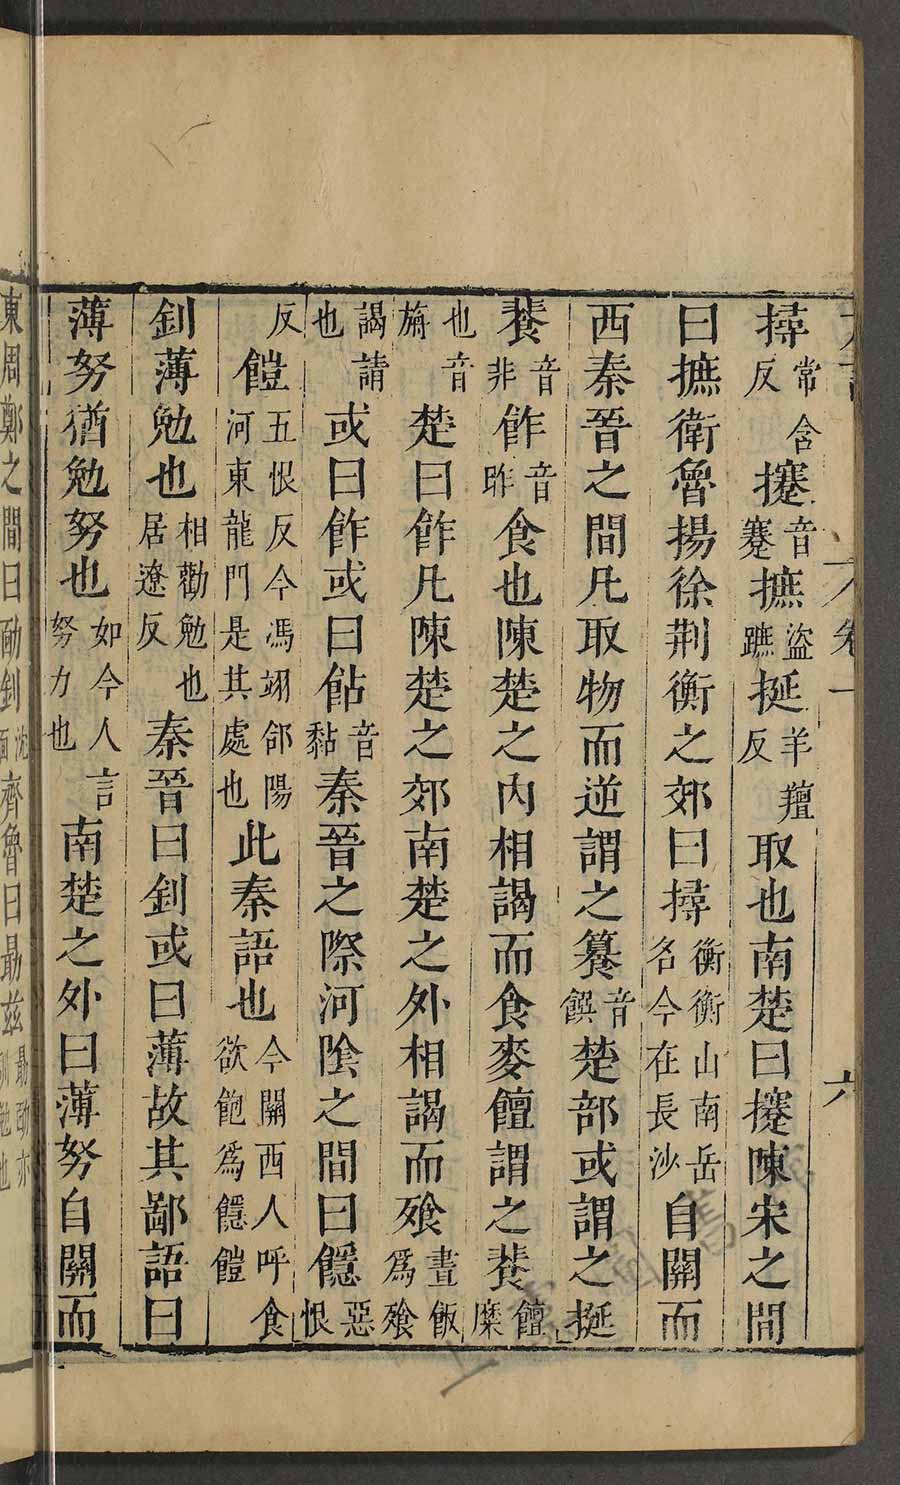 撏常含反攓音蹇摭盜蹠挻羊羶反取也南楚曰攓陳宋之間
曰摭衛魯揚徐荆衡之郊曰撏衡衡山南岳名今在長沙自關而
西秦晉之間凡取物而逆謂之篡音饌楚部或謂之挻
餥音非飵音昨食也陳楚之內相謁而食麥饘謂之餥饘糜
也音旃楚曰飵凡陳楚之郊南楚之外相謁而飱晝飯爲飱
謁請也或曰飵或曰䬯音黏秦晉之際河陰之間曰䭡惡恨
反䭓五恨反今馮翊郃陽河東龍門是其處也此秦語也今關西人呼食欲飽爲䭡䭓
釗薄勉也相勸勉也居遼反秦晉曰釗或曰薄故其鄙語曰
薄努猶勉努也如今人言努力也南楚之外曰薄努自關而
東周鄭之間曰勔釗沈湎齊魯曰勗茲